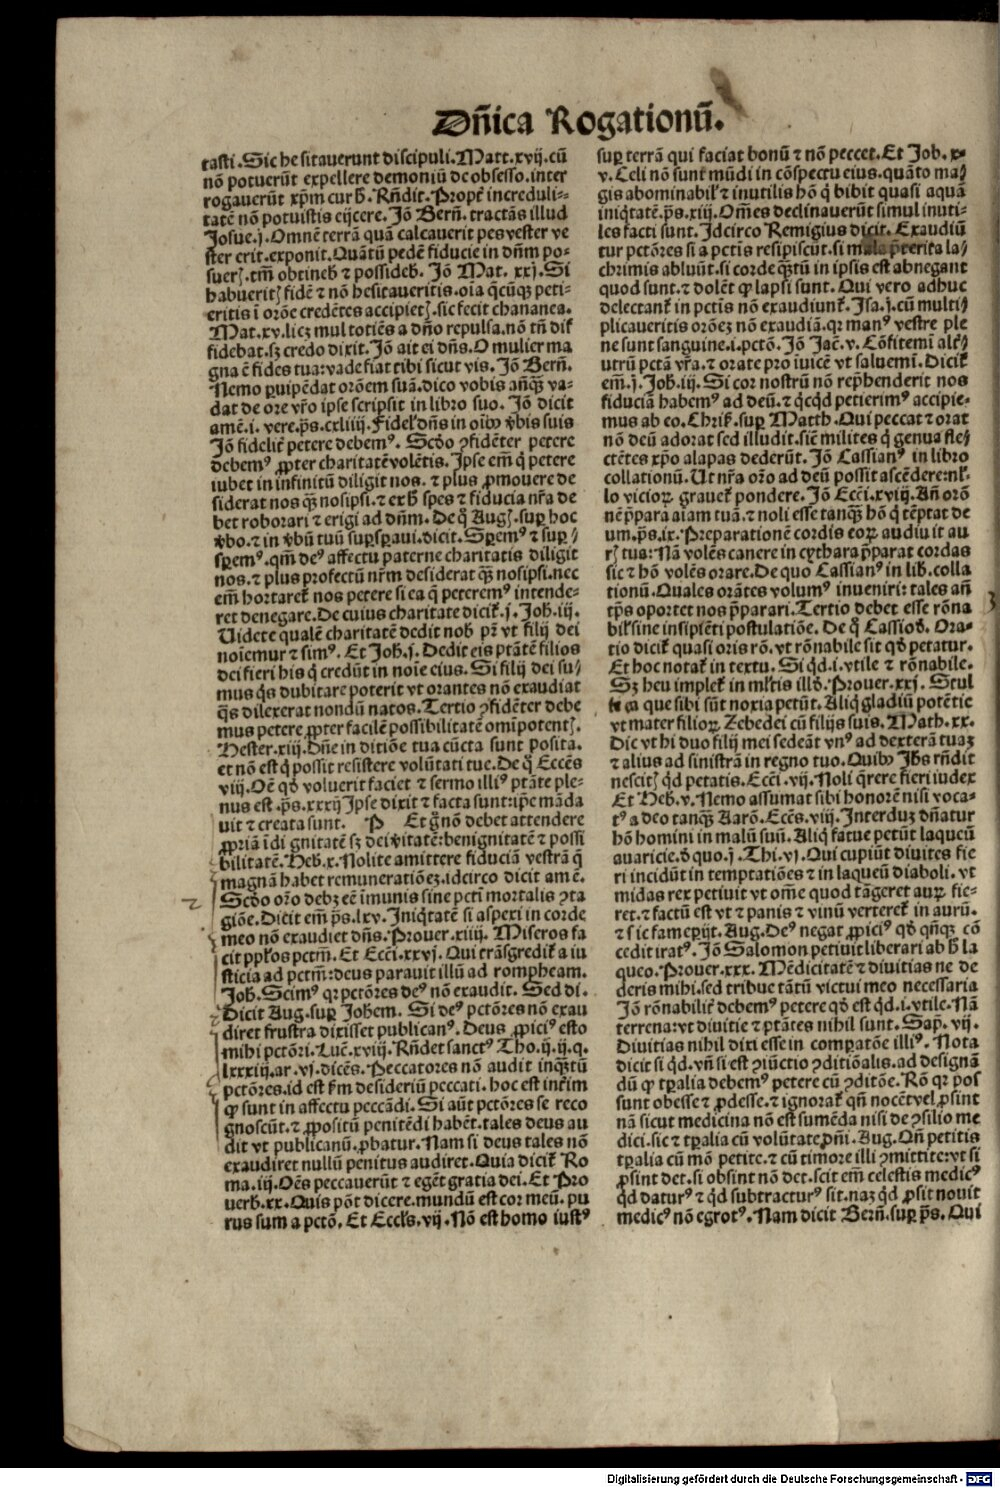 Dñica Rogationũ.
tasti. Sic hesitauerunt discipuli. Matt. xvij. cũ
nõ potuerũt expellere demoniũ de obsesso. inter
rogauerũt xp̄m cur ħ. Rñdit. Propť increduli⸗
tatẽ nõ potuistis eijcere. Jõ Berñ. tractãs illud
Josue. j. Omnẽ terrã quã calcauerit pes vester ve
ster erit. exponit. Quãtũ pedẽ fiducie in dñm po⸗
sueř. tm̃ obtineb̃ ⁊ possideb̃. Jõ Mat. xxj. Si
habueritꝭ fidẽ ⁊ nõ hesitaueritis. oĩa q̃cũqꝫ peti⸗
eritis ĩ orõe credẽtes accipietꝭ. sic fecit chananea.
Mat. xv. licꝫ multotiẽs a dño repulsa. nõ tñ dif
fidebat. sꝫ credo dixit. Jõ ait ei dñs. O mulier ma
gna ẽ fides tua: vade fiat tibi sicut vis. Jõ Berñ.
Nemo ꝑuipẽdat orõem suã. dico vobis añq̃ꝫ va⸗
dat de ore vr̃o ipse scripsit in libro suo. Jõ dicit
amẽ. i. vere. p̃s. cxliiij. Fidel᷑ dñs in oĩbꝫ v̾bis suis
Jõ fidelit̾ petere debemꝰ. Scd̾o ꝯfidẽter petere
debemꝰ ꝓpter charitatẽ volẽtis. Ipse em̃ q̃ petere
iubet in infinitũ diligit nos. ⁊ plus ꝓmouere de
siderat nos q̃ꝫ nosipsi. ⁊ ex ħ spes ⁊ fiducia nr̃a de
bet roborari ⁊ erigi ad dñm. De q̊ Augꝭ. suꝑ hoc
v̾bo. ⁊ in v̾bũ tuũ suꝑsꝑaui. dicit. Sꝑemꝰ ⁊ suꝑ/
sꝑemꝰ. qm̃ deꝰ affectu paterne charitatis diligit
nos. ⁊ plus profectũ nr̃m desiderat q̃ꝫ nosipsi. nec
em̃ hortaret᷑ nos petere si ea q̃ peteremꝰ intende⸗
ret denegare. De cuius charitate dicit᷑. j. Joh. iij.
Uidete qualẽ charitatẽ dedit nob̃ pr̃ vt filij dei
noĩemur ⁊ simꝰ. Et Joh. j. Dedit eis ptãtẽ filios
dei fieri his q̃ credũt in noĩe eius. Si filij dei su/
mus q̊s dubitare poterit vt orantes nõ exaudiat
q̃s dilexerat nondũ natos. Tertio ꝯfidẽter debe
mus petere ꝓpter facilẽ possibilitatẽ omĩpotentꝭ.
Hester. xiij. Dñe in ditiõe tua cũcta sunt posita.
et nõ est q̃ possit resistere volũtati tue. De q̊ Eccẽs
viij. Oẽ qd̾ voluerit faciet ⁊ sermo illiꝰ ptãte ple⸗
nus est. p̃s. xxxij Ipse dixit ⁊ facta sunt: ip̃e mãda
uit ⁊ creata sunt. P Et g̊ nõ debet attendere
ꝓpriã ĩdignitatẽ sꝫ dei v̾itatẽ: benignitatẽ ⁊ possi
bilitatẽ. Heb̾. x. Nolite amittere fiduciã vestrã q̃
magnã habet remuneratiõeꝫ. idcirco dicit amẽ.
Scd̾o or̃o debꝫ eẽ ĩmunis sine pctĩ mortalis ꝯta
giõe. Dicit em̃ p̃s. lxv. Iniq̇tatẽ si aspexi in corde
meo nõ exaudiet dñs. Prouer. xiiij. Miseros fa
cit pp̃łos pctm̃. Et Ecci. xxvj. Qui trãsgredit᷑ a iu
sticia ad pctm̃: deus parauit illũ ad rompheam.
Joh. Scimꝰ qꝛ pctõres deꝰ nõ exaudit. Sed di.
Dicit Aug. suꝑ Johem. Si deꝰ pctõres nõ exau
diret frustra dixisset publicanꝰ. Deus ꝓpiciꝰ esto
mihi pctõri. Luc̃. xviij. Rñdet sanctꝰ Tho. ij. ij. q.
lxxxiij. ar. vj. dicẽs. Peccatores nõ audit inq̃ꝫtũ
pctõres. id est s̃m desideriũ peccati. hoc est inťim
qꝫ sunt in affectu peccãdi. Si aũt pctõres se reco
gnoscũt. ⁊ ꝓpositũ penitẽdi habẽt. tales deus au
dit vt publicanũ. ꝓbatur. Nam si deus tales nõ
exaudiret nullũ penitus audiret. Quia dicit᷑ Ro
ma. iij. Oẽs peccauerũt ⁊ egẽt gratia dei. Et Pro
uerb̾. xx. Quis põt dicere. mundũ est cor meũ. pu
rus sum a pctõ. Et Eccłs. vij. Nõ est homo iustꝰ
suꝑ terrã qui faciat bonũ ⁊ nõ peccet. Et Job. x
v. Celi nõ sunt mũdi in cõspectu eius. quãto ma/
gis abominabil᷑ ⁊ inutilis hõ q̃ bibit quasi aquã
iniq̇tatẽ. p̃s. xiij. Om̃es declinauerũt simul inuti⸗
les facti sunt. Idcirco Remigius dicit. Exaudiũ
tur pctõres si a pctĩs resipiscũt. si mala p̃terita la/
chrimis abluũt. si corde q̃ꝫtũ in ipsis est abnegant
quod sunt. ⁊ dolẽt qꝫ lapsi sunt. Qui vero adhuc
delectant᷑ in pctĩs nõ exaudiunt᷑. Isa. j. cũ multi/
plicaueritis orõeꝫ nõ exaudiã. qꝛ manꝰ vestre ple
ne sunt sanguine. i. pctõ. Jõ Jac̃. v. Cõfitemĩ alť/
utrũ pctã vr̃a. ⁊ orate pro ĩuicẽ vt saluemĩ. Dicit᷑
em̃. j. Joh. iij. Si cor nostrũ nõ rep̃henderit nos
fiduciã habemꝰ ad deũ. ⁊ q̇cq̇d petierimꝰ accipie⸗
mus ab eo. Chriſ. suꝑ Matth. Qui peccat ⁊ orat
nõ deũ adorat sed illudit. sic̃ milites q̃ genua fle/
ctẽtes xp̃o alapas dederũt. Jõ Cassianꝰ in libro
collationũ. Ut nr̃a or̃o ad deũ possit ascẽdere: nł⸗
lo vicioꝝ grauet᷑ pondere. Jõ Ecci. xviij. Añ orõ
nẽ p̃para aĩam tuã. ⁊ noli esse tanq̃ꝫ hõ q̃ tẽptat de
um. p̃s. ix. Preparationẽ cordis eoꝝ audiuit au
rꝭ tua: Nã volẽs canere in cythara p̃parat cordas
sic ⁊ hõ volẽs orare. De quo Cassianꝰ in lib. colla
tionũ. Quales orãtes volumꝰ inueniri: tales añ
tp̃s oportet nos p̃parari. Tertio debet esse rõna
bil᷑ sine insipiẽti postulatiõe. De q̊ Cassiod̾. Ora⸗
tio dicit᷑ quasi oris rõ. vt rõnabile sit qd̾ petatur.
Et hoc notat᷑ in textu. Si q̇d. i. vtile ⁊ rõnabile.
Sꝫ heu implet᷑ in młtis illd̾. Prouer. xxj. Stul
ti ea que sibi sũt noxia petũt. Aliq̃ gladiũ potẽtie
vt mater filioꝝ Zebedei cũ filijs suis. Math. xx.
Dic vt hi duo filij mei sedeãt vnꝰ ad dexterã tuaꝫ
⁊ alius ad sinistrã in regno tuo. Quibꝫ Jħs rñdit
nescitꝭ q̇d petatis. Ecci. vij. Noli q̃rere fieri iudex
Et Heb̾. v. Nemo assumat sibi honorẽ nisi voca⸗
tꝰ a deo tanq̃ꝫ Aarõ. Eccẽs. viij. Interduꝫ dñatur
hõ homini in malũ suũ. Aliq̃ fatue petũt laqueũ
auaricie. d̾ quo. j. Thi. vj. Qui cupiũt diuites fie
ri incidũt in temptatiões ⁊ in laqueũ diaboli. vt
midas rex petiuit vt om̃e quod tãgeret auꝝ fie⸗
ret. ⁊ factũ est vt ⁊ panis ⁊ vinũ verteret᷑ in aurũ.
⁊ sic famerijt. Aug. Deꝰ negat ꝓpiciꝰ qd̾ qñqꝫ cõ
cedit iratꝰ. Jõ Salomon petiuit liberari ab ħ la
queo. Prouer. xxx. Mẽdicitatẽ ⁊ diuitias ne de
deris mihi. sed tribue tãtũ victui meo necessaria
Jõ rõnabilit̾ debemꝰ petere qd̾ est q̇d. i. vtile. Nã
terrena: vt diuitie ⁊ ptãtes nihil sunt. Sap̃. vij.
Diuitias nihil dixi esse in comparatõe illiꝰ. Nota
dicit si q̇d. vñ si est ꝯiũctio ꝯditiõalis. ad designã
dũ qꝫ tꝑalia debemꝰ petere cũ ꝯditõe. Rõ qꝛ pos
sunt obesse ⁊ ꝓdesse. ⁊ ignorat᷑ qñ nocẽt vel ꝓsint
nã sicut medicina nõ est sumẽda nisi de ꝯsilio me
dici. sic ⁊ tꝑalia cũ volũtate dñi. Aug. Qñ petitis
tꝑalia cũ mõ petite. ⁊ cũ timore illi ꝯmittite: vt si
ꝓsint det. si obsint nõ det. scit em̃ celestis medicꝰ
q̇d daturꝰ ⁊ q̇d subtracturꝰ sit. naꝫ q̇d ꝓsit nouit
medicꝰ nõ egrotꝰ. Nam dicit Berñ. suꝑ p̃s. Qui
Digitalisierung gefördert durch die Deutsche Forschungsgemeinschaft - DFG